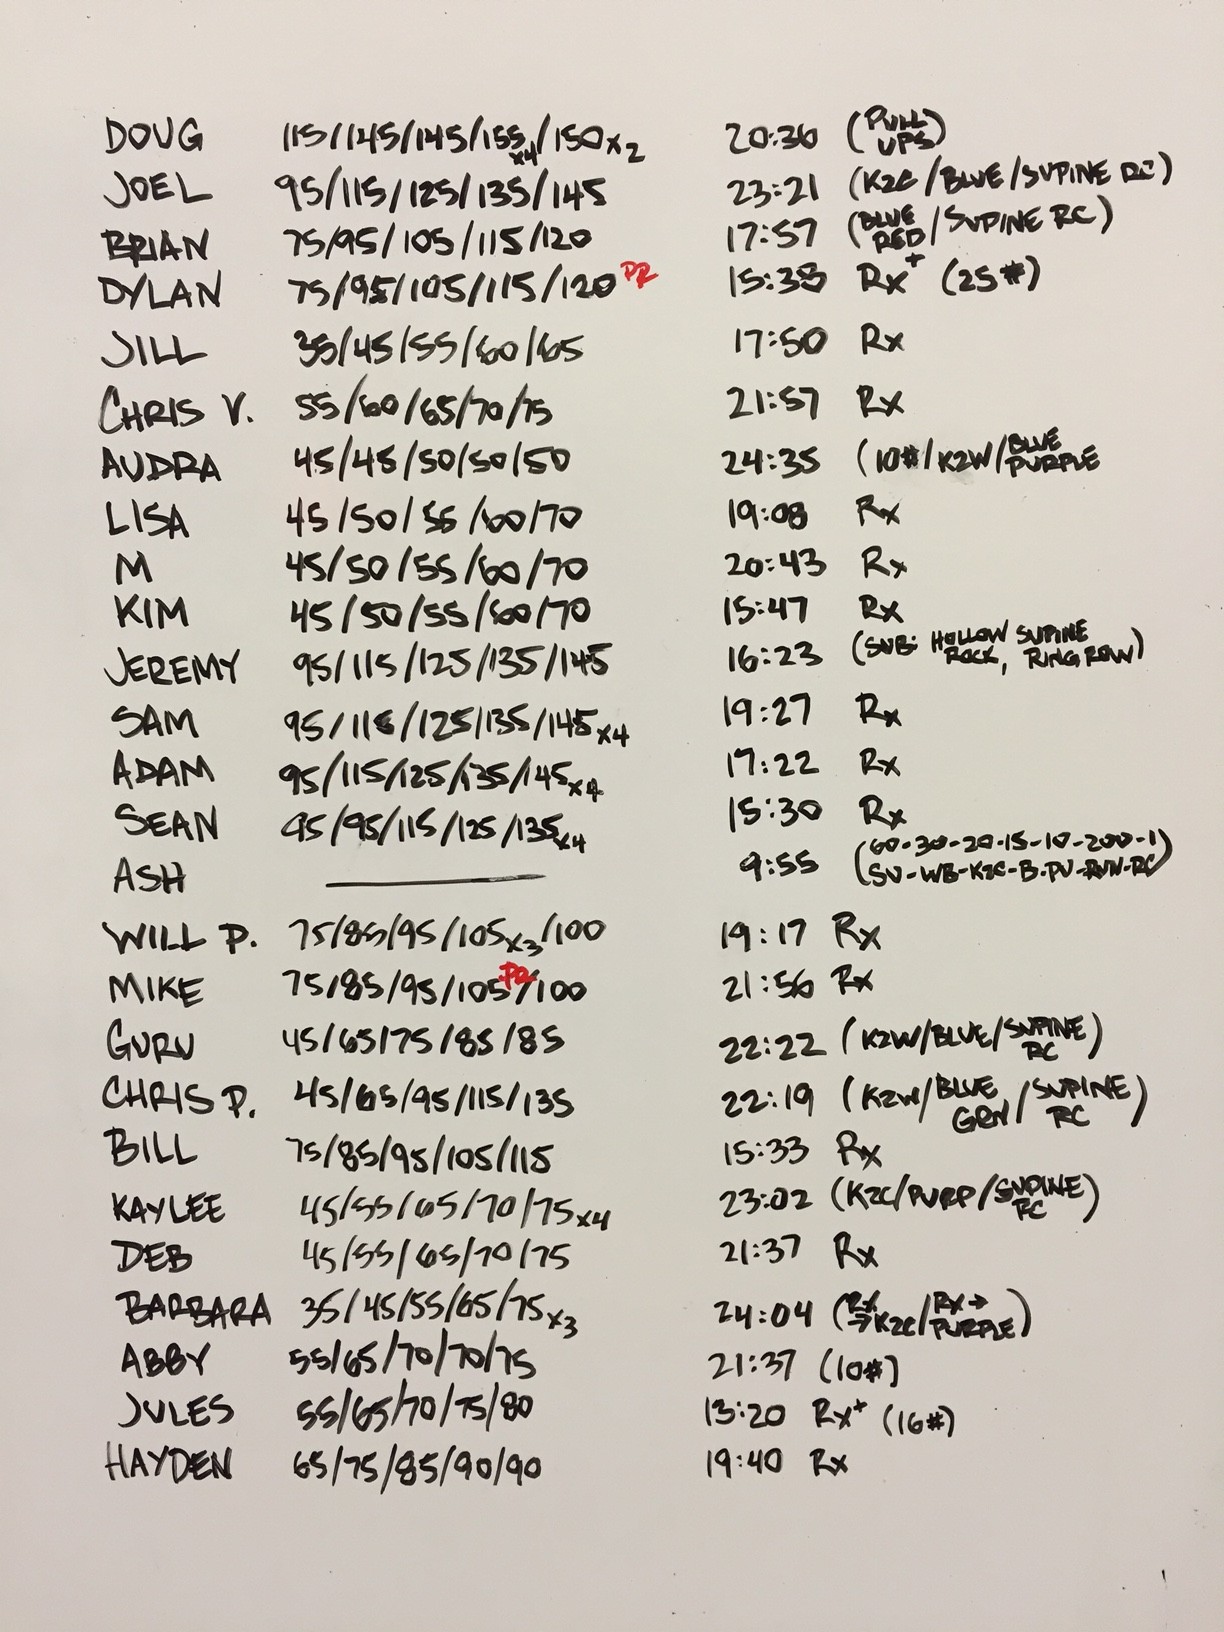 DOUG 115/145/145/155x4/150x2 20:36 (PULL UPS)
JOEL 95/115/125/135/145 23:21 (K2C/BLUE/SUPINE RC)
BRIAN 75/95/105/115/120 17:57 (BLUE RED/SUPINE RC)
DYLAN 75/95/105/115/120 PR 15:38 Rx+ (25#)
JILL 35/45/55/60/65 17:50 Rx
CHRIS V. 55/60/65/70/75 21:57 Rx
AUDRA 45/45/50/50/50 24:35 (10#/K2W/BLUE PURPLE
LISA 45/50/55/60/70 19:08 Rx
M 45/50/55/60/70 20:43 Rx
KIM 45/50/55/60/70 15:47 Rx
JEREMY 95/115/125/135/145 16:23 (SUB: HOLLOW ROCK, SUPINE RING ROW)
SAM 95/115/125/135/145x4 19:27 Rx
ADAM 95/115/125/135/145x4 17:22 Rx
SEAN 95/95/115/125/135x4 15:30 Rx
ASH — 9:55 (60-30-20-15-10-200-1 SU-WB-K2C-B.PU-RUN-RC)
WILL P. 75/85/95/105x3/100 19:17 Rx
MIKE 75/85/95/105 PR/100 21:56 Rx
GURU 45/65/75/85/85 22:22 (K2W/BLUE/SUPINE RC)
CHRIS P. 45/65/95/115/135 22:19 (K2W/BLUE GRN/SUPINE RC)
BILL 75/85/95/105/115 15:33 Rx
KAYLEE 45/55/65/70/75x4 23:02 (K2C/PURP/SUPINE RC)
DEB 45/55/65/70/75 21:37 Rx
BARBARA 35/45/55/65/75x3 24:04 (Rx → K2C/Rx → PURPLE)
ABBY 55/65/70/70/75 21:37 (10#)
JULES 55/65/70/75/80 13:20 Rx+ (16#)
HAYDEN 65/75/85/90/90 19:40 Rx